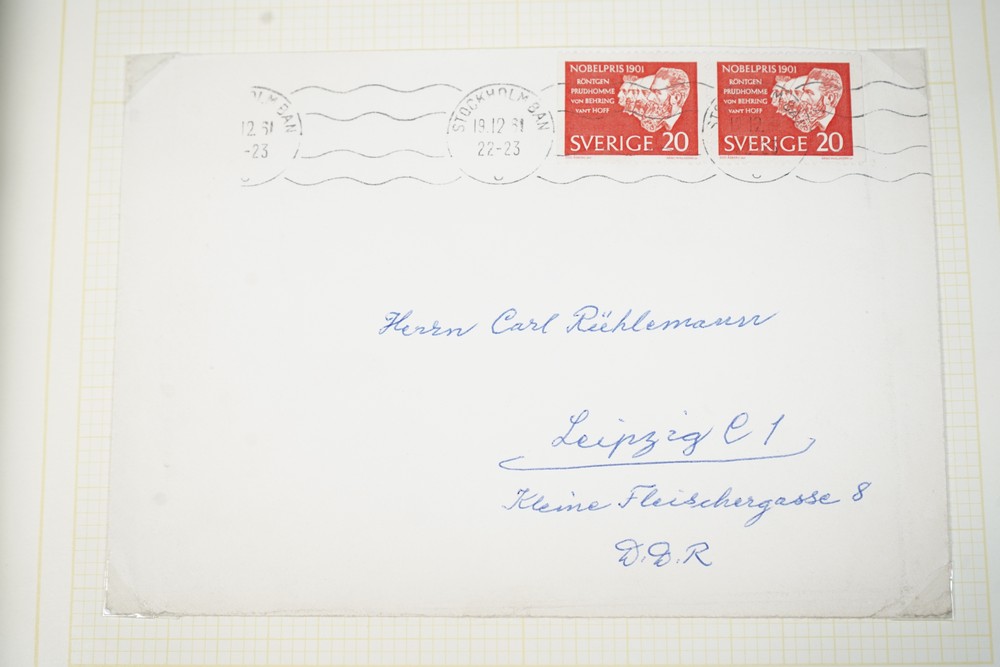 OLM BAN
12.61
-23
STOCKHOLM BAN
19.12 61
22-23
NOBELPRIS 1901
RÖNTGEN
PRUDHOMME
VON BEHRING
VAN'T HOFF
SVERIGE 20
NOBELPRIS 1901
RÖNTGEN
PRUDHOMME
VON BEHRING
VAN'T HOFF
SVERIGE 20
Herrn Carl Rühlemann
Leipzig C 1
Kleine Fleischergasse 8
D.D.R